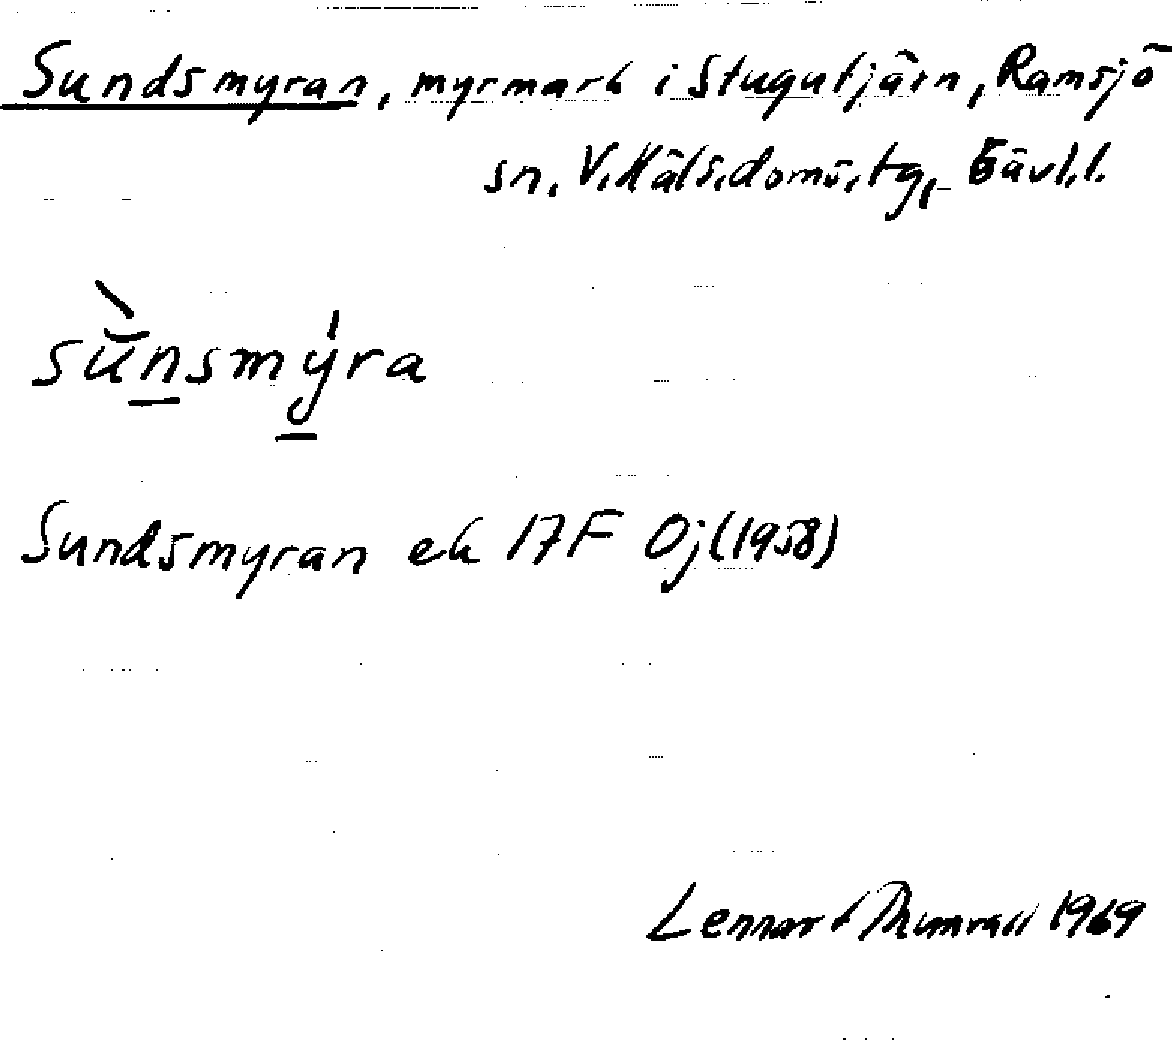 Sundsmyran, myrmark i Stugutjärn, Ramsjö
sn, V. Hälsi. doms.tg, Gävl.l.
sùnsmý̱ra
Sundsmyran ek 17F Oj (1958)
Lennart Thunvall 1969